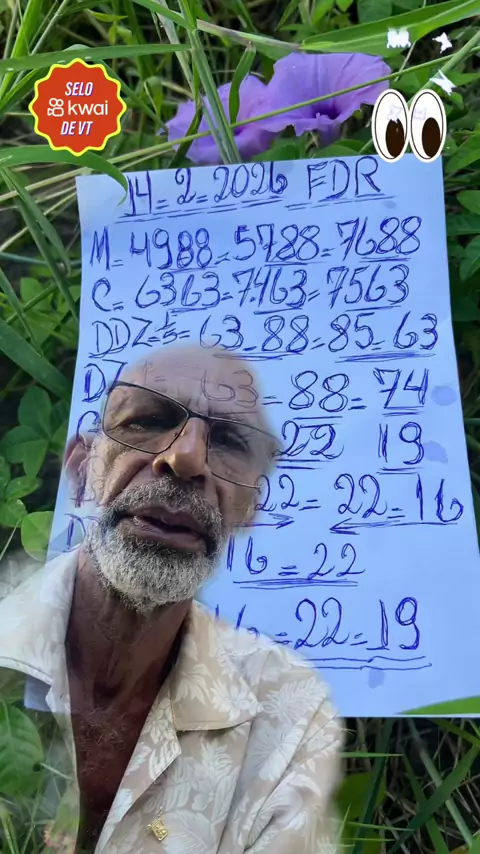 SELO
kwai
DE VT
14=2=2026 FDR
M=4988=5788=7688
C=6363=7463=7563
DDZ=1/5=63=88=85=63
63=88=74
22 19
22=22=16
16=22
=22=19